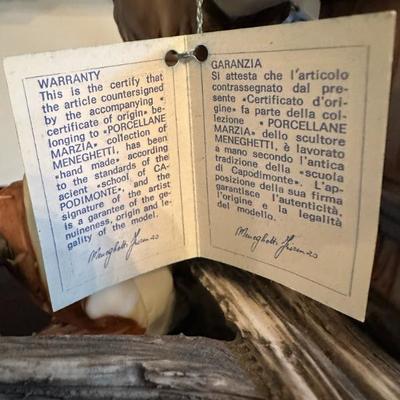 WARRANTY
This is the certify that
the article countersigned
by the accompanying «
certificate of origin» be-
longing to «PORCELLANE
MARZIA» collection of
MENEGHETTI has been
«hand made» according
to the standards of the
acient «school of CA-
PODIMONTE», and the
signature of the artist
is a garantee of the ge-
nuineness, origin and le-
gality of the model.
Meneghetti
GARANZIA
Si attesta che l'articolo
contrassegnato dal pre-
sente «Certificato d'ori-
gine» fa parte della col-
lezione «PORCELLANE
MARZIA» dello scultore
MENEGHETTI, è lavorato
a mano secondo l'antica
tradizione della «scuola
di Capodimonte». L'ap-
posizione della sua firma
garantisce l'autenticità,
l'origine e la legalità
del modello.
Meneghetti